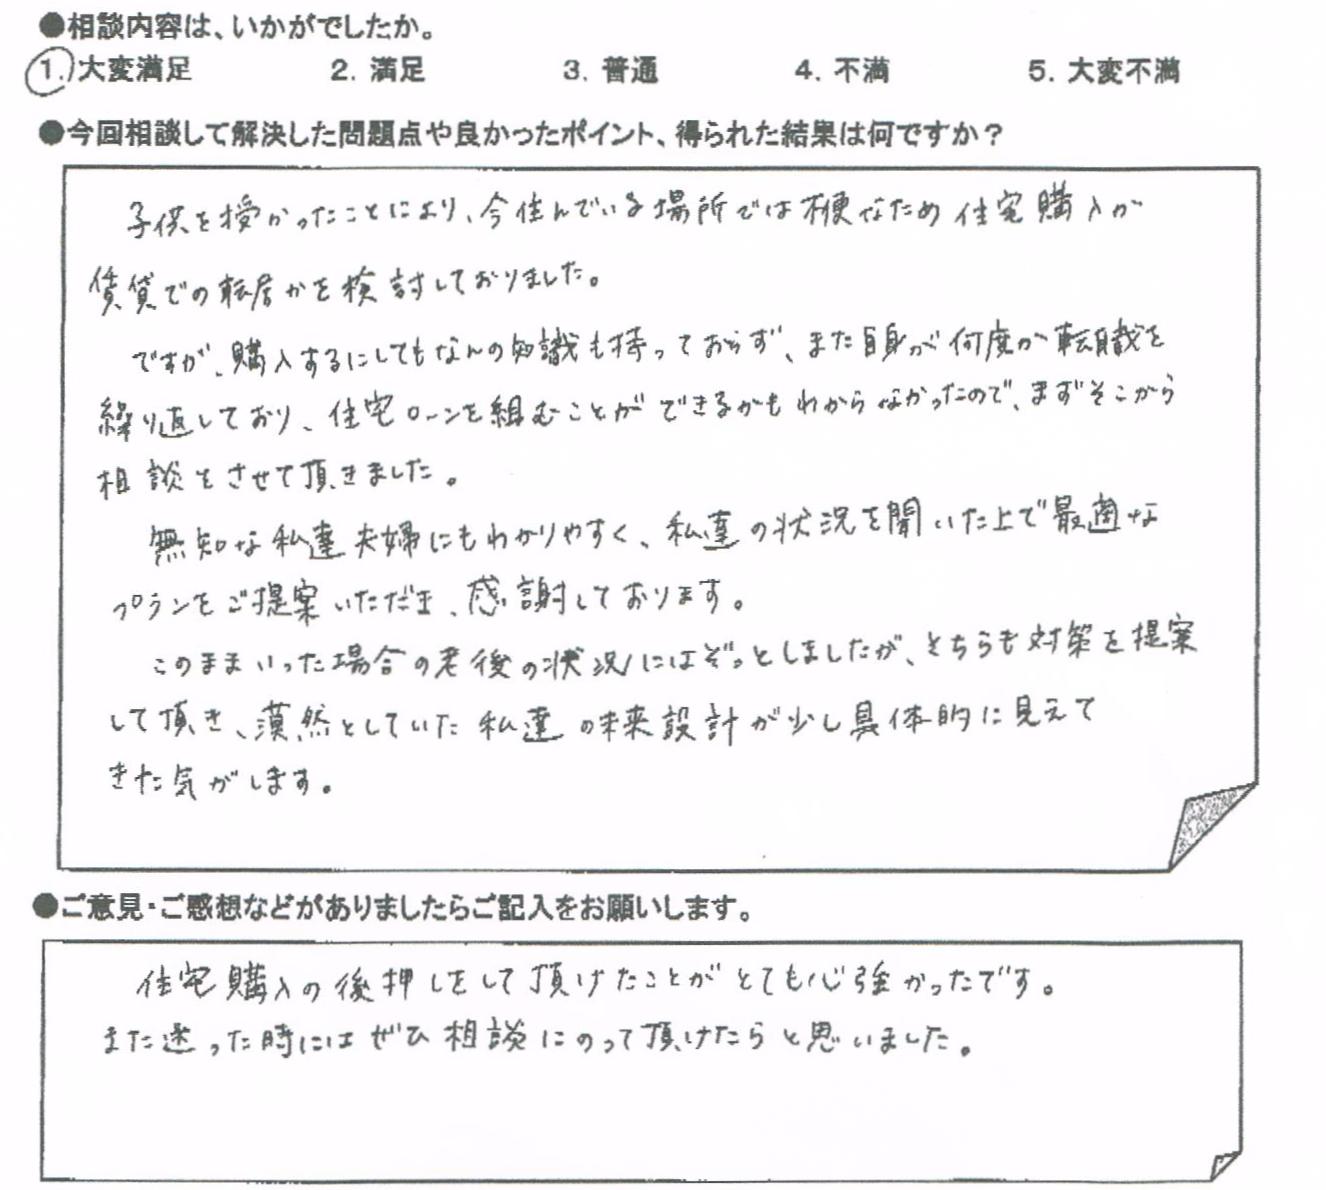 ●相談内容は、いかがでしたか。
1. 大変満足 2. 満足 3. 普通 4. 不満 5. 大変不満
●今回相談して解決した問題点や良かったポイント、得られた結果は何ですか？
子供を授かったことにより、今住んでいる場所では不便なため住宅購入か
賃貸での転居かを検討しておりました。
ですが、購入するにしてもなんの知識も持っておらず、また自身が何度か転職を
繰り返しており、住宅ローンを組むことができるかもわからなかったので、まずそこから
相談をさせて頂きました。
無知な私達夫婦にもわかりやすく、私達の状況を聞いた上で最適な
プランをご提案いただき、感謝しております。
このままいった場合の老後の状況にはぞっとしましたが、そちらも対策を提案
して頂き、漠然としていた私達の未来設計が少し具体的に見えて
きた気がします。
●ご意見・ご感想などがありましたらご記入をお願いします。
住宅購入の後押しをして頂けたことがとても心強かったです。
また迷った時にはぜひ相談にのって頂けたらと思いました。